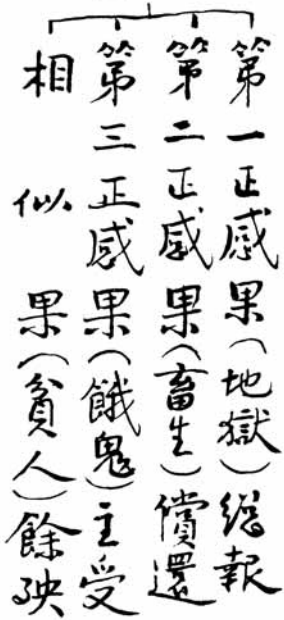 第一正感果（地獄）總報
第二正感果（畜生）償還
第三正感果（餓鬼）主受
相似果（貧人）餘殃